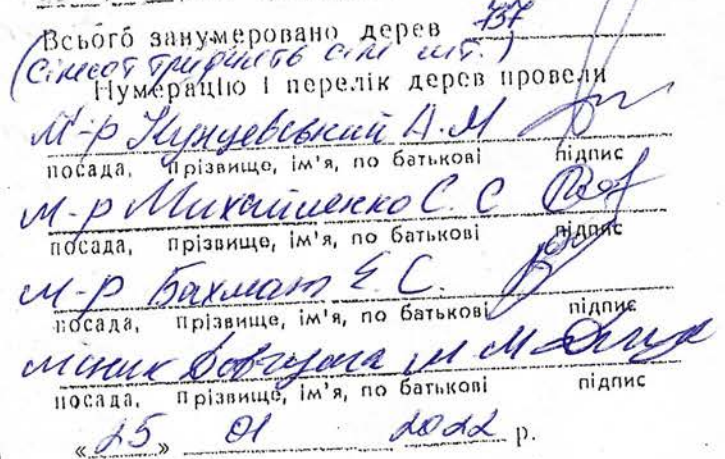 Всього занумеровано дерев 737
(сімсот тридцять сім шт.)
Нумерацію і перелік дерев провели
М-р Кунцевський А.М
посада, прізвище, ім'я, по батькові підпис
М-р Михайленко С. С
посада, прізвище, ім'я, по батькові підпис
М-р Бахмат Є. С.
посада, прізвище, ім'я, по батькові підпис
М М
посада, прізвище, ім'я, по батькові підпис
«25» 01 2022 р.